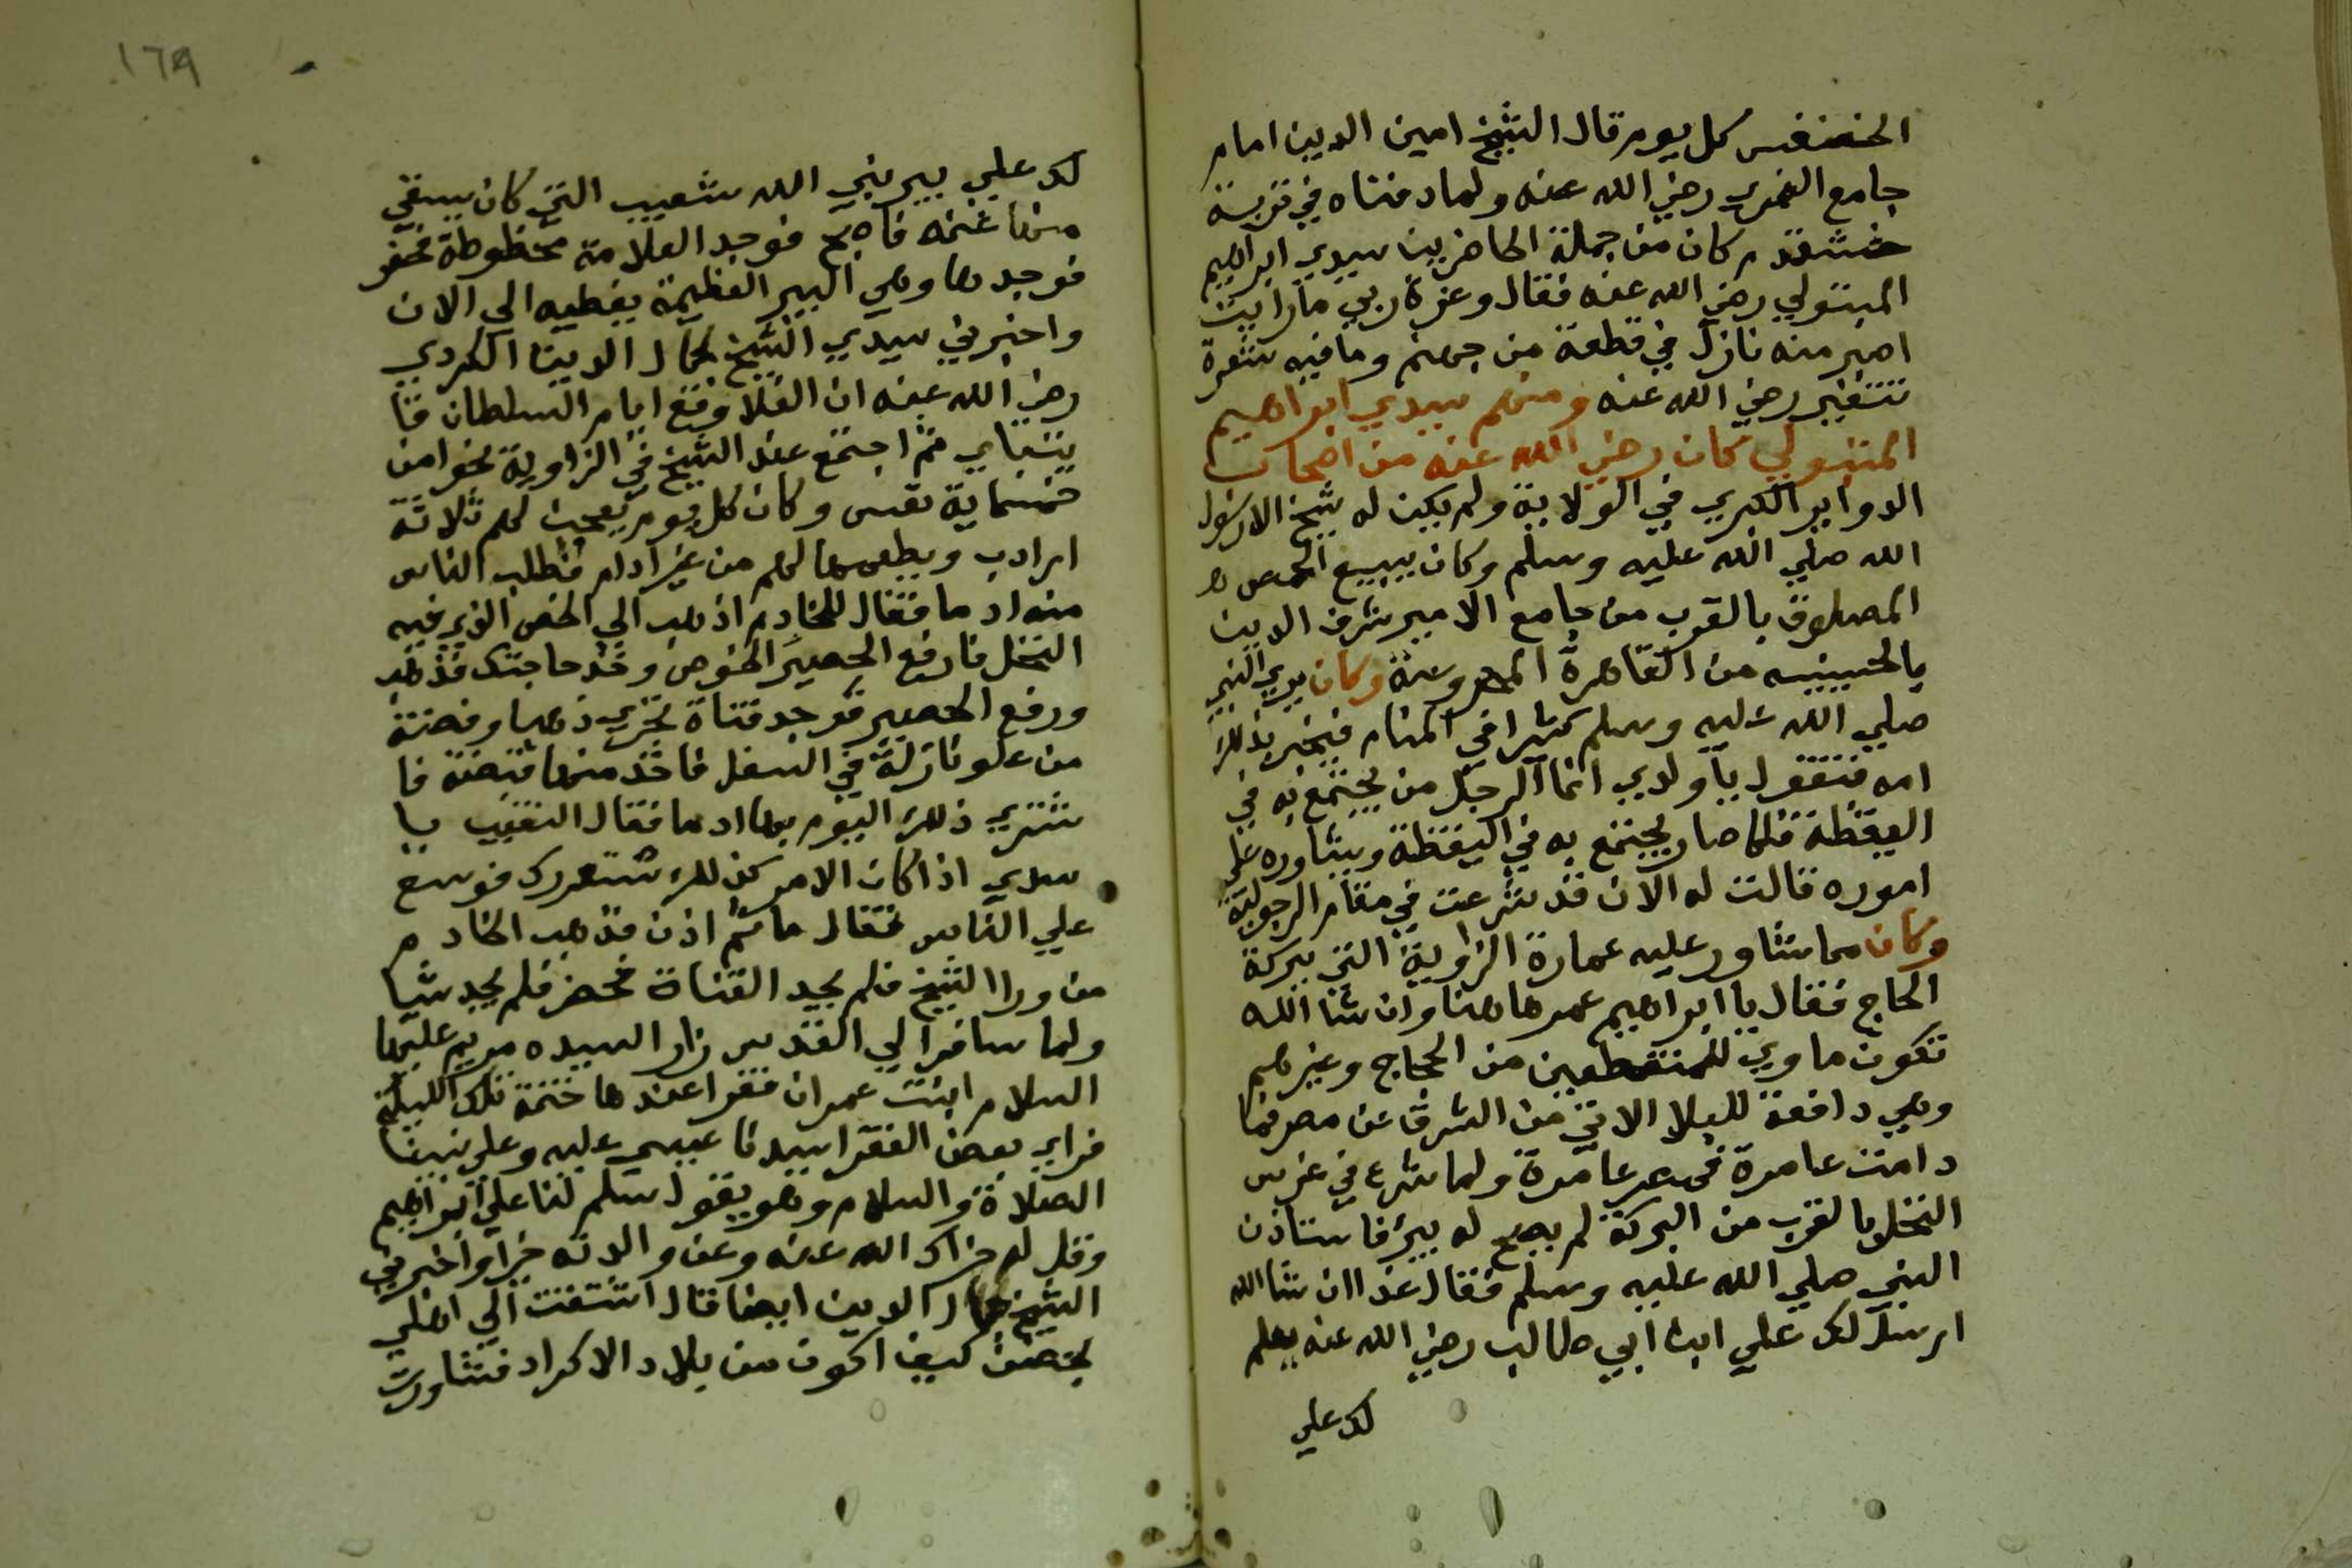 الخنفس كل يوم قال الشيخ امين الدين امام
جامع الغمري رضي الله عنه ولما دفناه في تربة
خشقدم كان من جملة الحاضرين سيدي ابراهيم
المتبولي رضي الله عنه فقال وعزة ربي ما رايت
اصبر منه نازل في قطعة من جهنم وما فيه شعرة
تتغير رضي الله عنه ومنهم سيدي ابراهيم
المتبولي كان رضي الله عنه من اصحاب
الدواير الكبري في الولاية ولم يكن له شيخ الا رسول
الله صلي الله عليه وسلم وكان يبيع الحمص
المصلوق بالقرب من جامع الامير شرف الدين
بالحسينيه من القاهرة المحروسة وكان يري النبي
صلي الله عليه وسلم كثيرا في المنام فيخبر بذلك
امه فتقول يا ولدي انما الرجل من يجتمع به في
اليقظة فلما صار يجتمع به في اليقظة ويشاوره علي
اموره قالت له الان قد شرعت في مقام الرجولية
وكان مما شاور عليه عمارة الزاوية التي ببركة
الحاج فقال يا ابراهيم عمرها هنا وان شا الله
تكون ماوي للمنقطعين من الحجاج وغيرهم
وهي دافعة للبلا الاتي من الشرق عن مصر فما
دامت عامرة فمصر عامرة ولما شرع في غرس
النخل بالقرب من البركة لم يصح له بير فاستاذن
النبي صلي الله عليه وسلم فقال غدا ان شا الله
ارسل لك علي ابن ابي طالب رضي الله عنه يعلم
لك علي
١٦٩
لك علي بير نبي الله شعيب التي كان يسقي
منها غنمه فاصبح فوجد العلامة مخطوطة فحفر
فوجدها وهي البير العظيمة بغطيه الي الان
واخبرني سيدي الشيخ جمال الدين الكردي
رضي الله عنه ان الغلا وقع ايام السلطان قا
يتباي ثم اجتمع عند الشيخ في الزاوية نحوا من
خمسماية نفس وكان كل يوم يعجن لهم ثلاثة
ارادب ويطعمها لهم من غير ادام فطلب الناس
منه ادما فقال للخادم اذهب الي الخص الذي فيه
النخل فارفع الحصير الخوص وخذ حاجتك فذهب
ورفع الحصير فوجد قناة تجري ذهبا وفضة
من علو نازلة في السفل فاخذ منها قبضة فا
شتري ذلك اليوم بها ادما فقال النقيب يا
سيدي اذا كان الامر كذلك فوسع
علي الناس فقال ما ثم اذن فذهب الخادم
من ورا الشيخ فلم يجد القناة فحفر فلم يجد شيا
ولما سافر الي القدس زار السيده مريم عليها
السلام ابنت عمران فقرا عندها ختمة تلك الليلة
فراي بعض الفقرا سيدنا عيسي عليه وعلي نبينا
الصلاة والسلام وهو يقول سلم لنا علي ابراهيم
وقل له جزاك الله عنه وعن والدته خيرا واخبرني
الشيخ جمال الدين ايضا قال اشتقت الي اهلي
بحصن كيفا اكون من بلاد الاكراد فشاورت